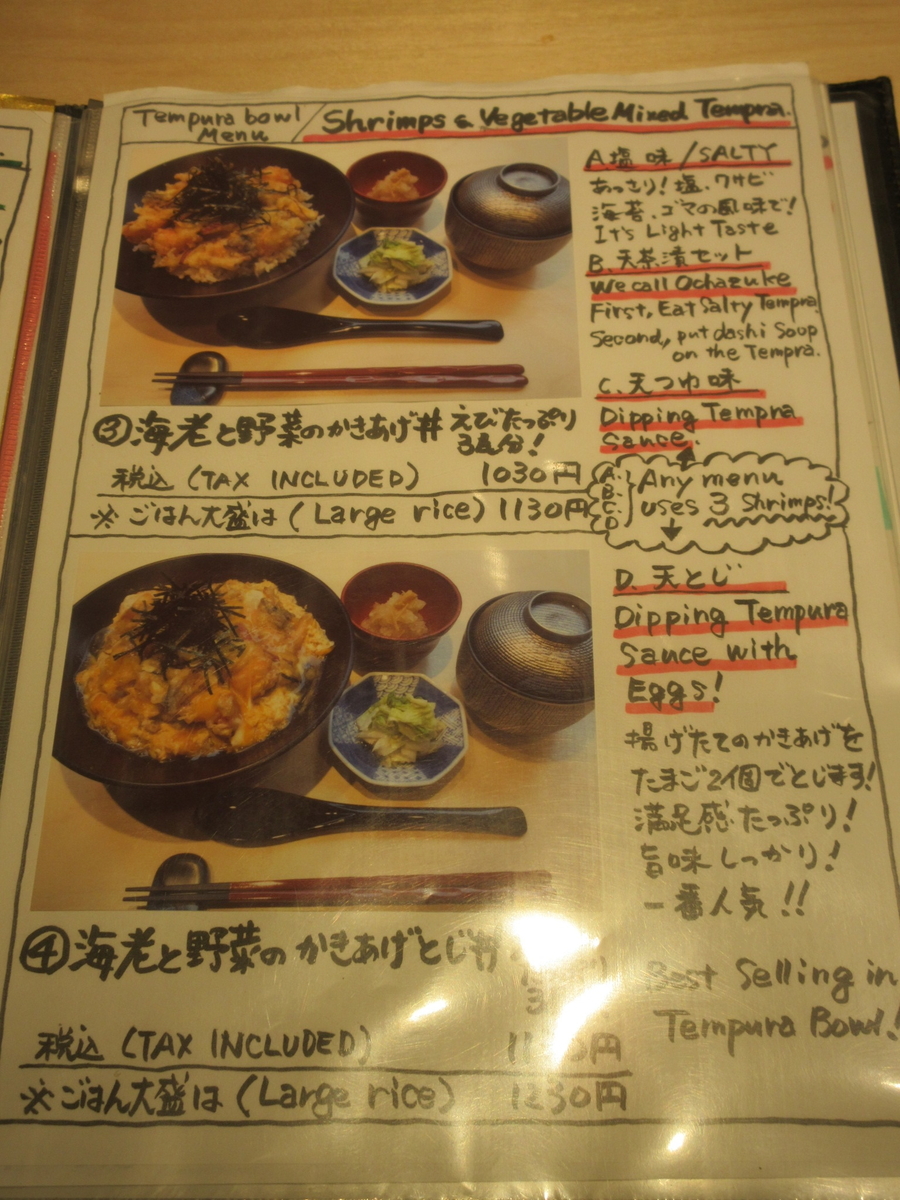 Tempura bowl Menu / Shrimps & Vegetable Mixed Tempra.
A. 塩味 / SALTY
あっさり! 塩、ワサビ
海苔、ゴマの風味で!
It's Light Taste
B. 天茶漬セット
We call Ochazuke
First, Eat Salty Tempra.
Second, put dashi Soup
on the Tempra.
C. 天つゆ味
Dipping Tempra
Sauce.
③海老と野菜のかきあげ丼 えびたっぷり
3尾分!
税込 (TAX INCLUDED) 1030円
※ごはん大盛は (Large rice) 1130円
A. B. C. D. Any menu
uses 3 Shrimps!
D. 天とじ
Dipping Tempura
Sauce with
Eggs!
揚げたてのかきあげを
たまご2個でとじます!
満足感たっぷり!
旨味しっかり!
一番人気!!
Best Selling in
Tempura Bowl!
④海老と野菜のかきあげとじ丼
3
税込 (TAX INCLUDED) 円
※ごはん大盛は (Large rice) 1230円